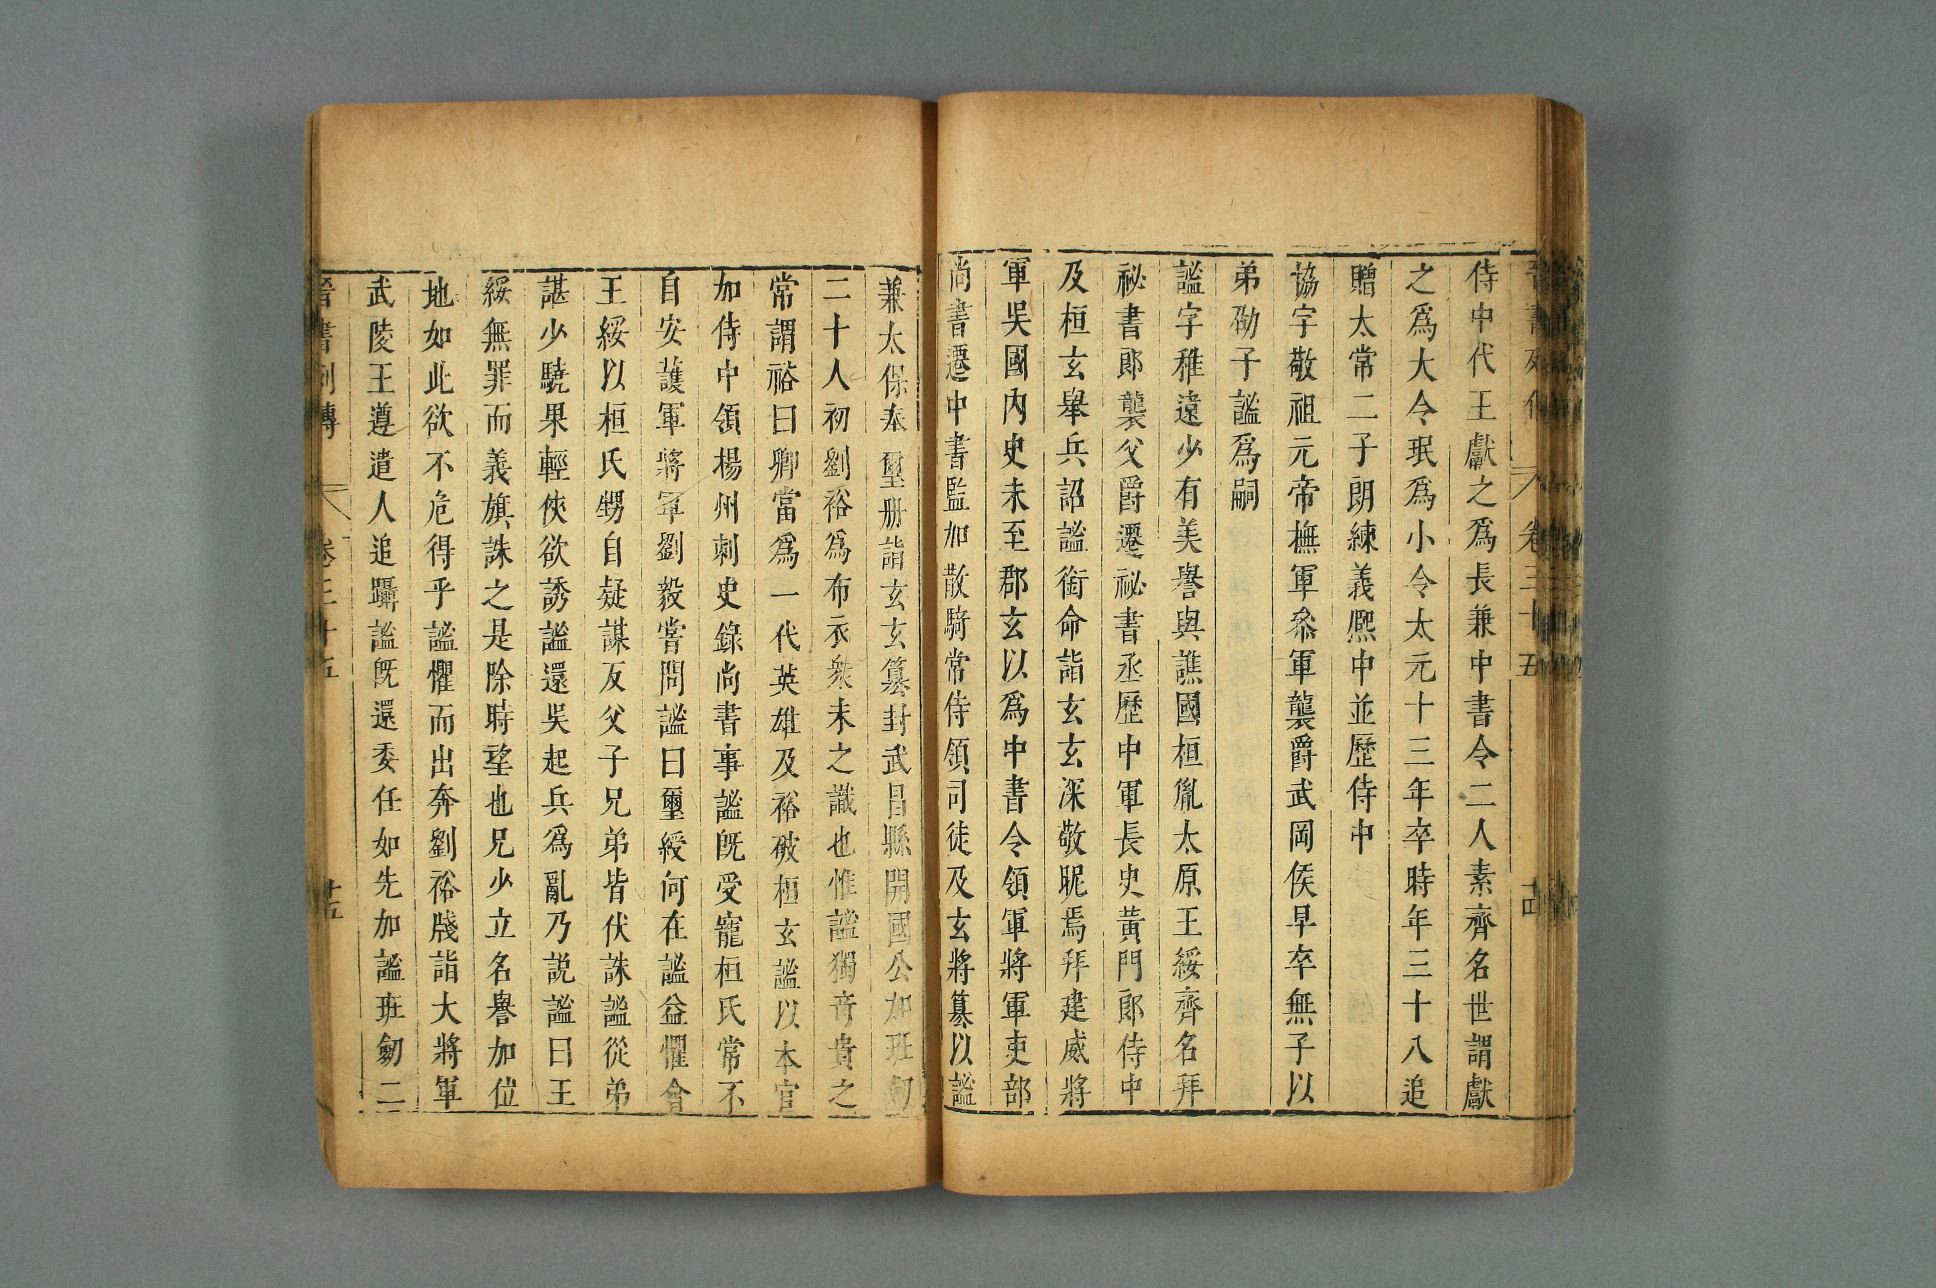 晉書列傳 卷三十五 十四
侍中代王獻之爲長兼中書令二人素齊名世謂獻
之爲大令珉爲小令太元十三年卒時年三十八追
贈太常二子朗練義熙中並歷侍中
協字敬祖元帝撫軍叅軍襲爵武岡侯早卒無子以
弟劭子謐爲嗣
謐字稚遠少有美譽與譙國桓胤太原王綏齊名拜
祕書郎襲父爵遷祕書丞歷中軍長史黃門郎侍中
及桓玄舉兵詔謐銜命詣玄玄深敬昵焉拜建威將
軍吳國內史未至郡玄以爲中書令領軍將軍吏部
尚書遷中書監加散騎常侍領司徒及玄將篡以謐
兼太保奉璽册詣玄玄篡封武昌縣開國公加班劒
二十人初劉裕爲布衣衆未之識也惟謐獨竒貴之
常謂裕曰卿當爲一代英雄及裕破桓玄謐以本官
加侍中領楊州刺史錄尚書事謐旣受寵桓氏常不
自安護軍將軍劉毅嘗問謐曰璽綬何在謐益懼會
王綏以桓氏甥自疑謀反父子兄弟皆伏誅謐從弟
諶少驍果輕俠欲誘謐還吳起兵爲亂乃説謐曰王
綏無罪而義旗誅之是除時望也兄少立名譽加位
地如此欲不危得乎謐懼而出奔劉裕牋詣大將軍
武陵王遵遣人追躡謐旣還委任如先加謐班劒二
晉書列傳 卷三十五 十五